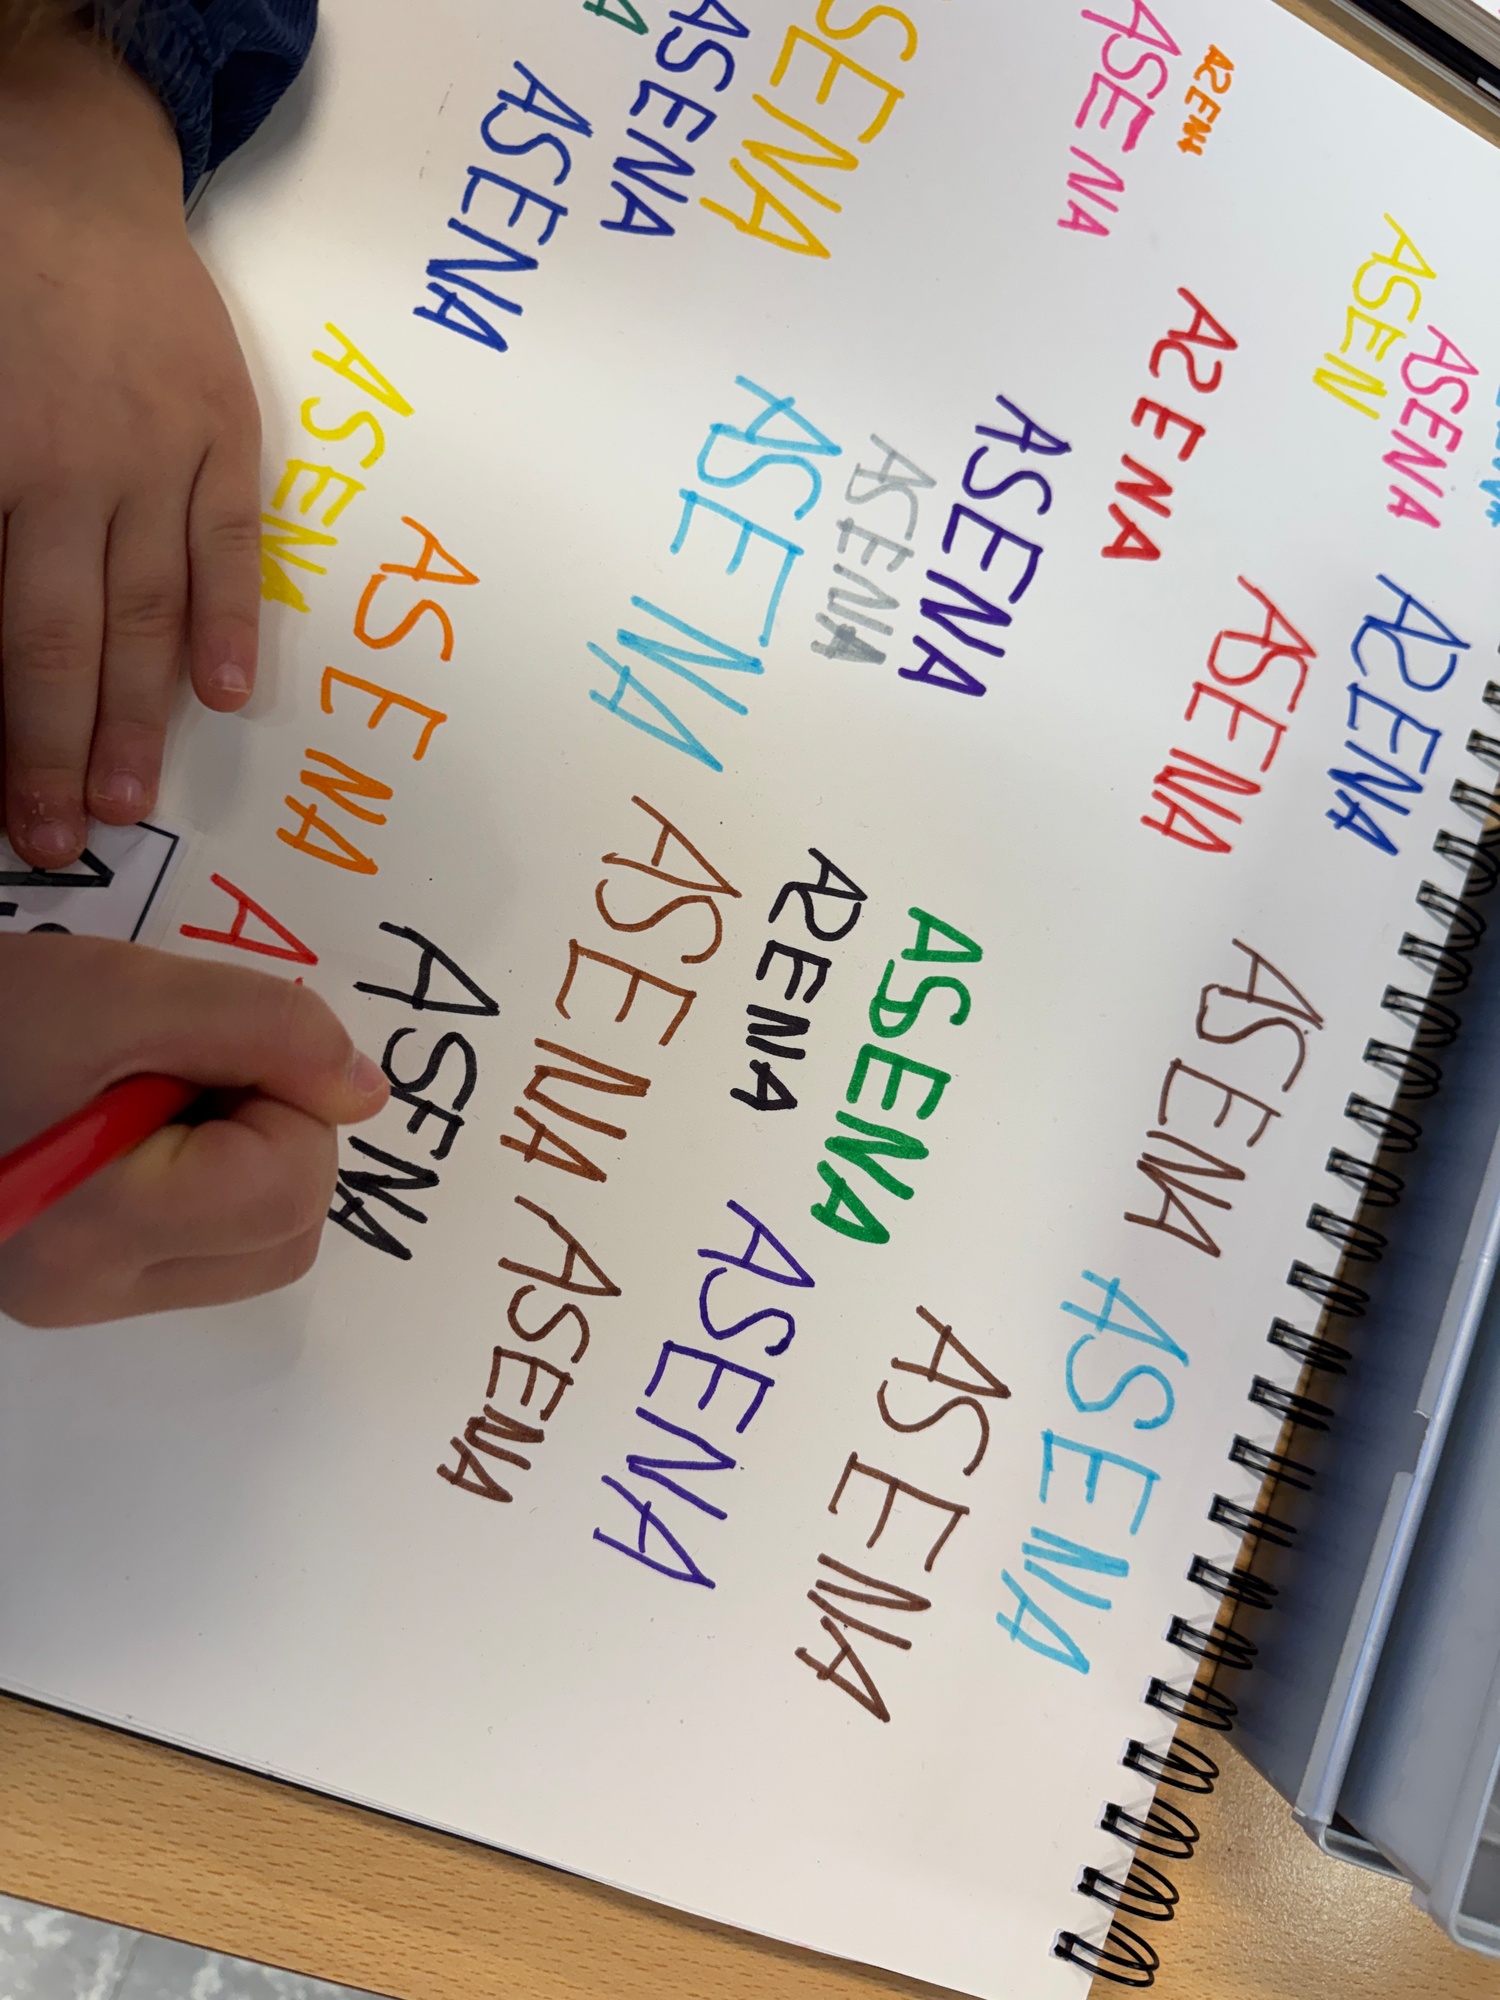 ASENA
ASEN
ASENA
ASENA
ASENA
ASENA
ASENA
ASENA
ASENA
ASENA
ASENA
ASENA
ASENA
SENA
ASENA
ASENA
ASENA
ASENA
ASENA
ASENA
A
ASENA
ASENA
ASENA
ASENA
A